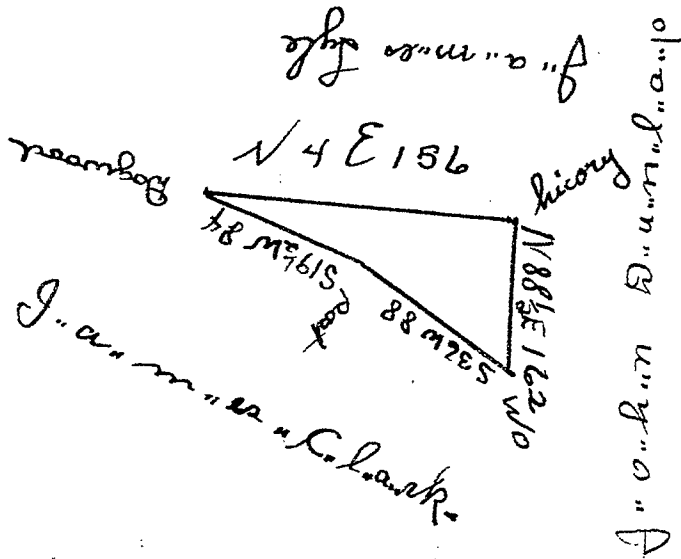 J"a"m"es Lyle
N 4 E 156
Dogwood
hicory
S19½W 84
post
S36W 88
N 88½ E 162
WO
J"a"m"es "C"l"a"rk"
J"o"h"n D"u"n"l"a"p